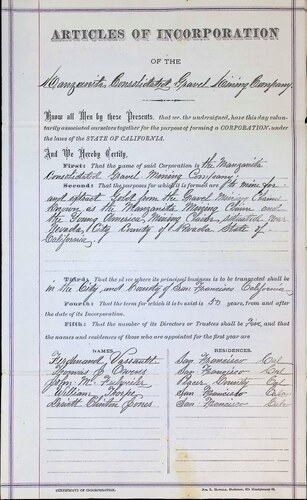 ARTICLES OF INCORPORATION
OF THE
Manzanita Consolidated Gravel Mining Company.
Know all Men by these Presents, that we the undersigned, have this day voluntarily
associated ourselves together for the purpose of forming a CORPORATION, under
the laws of the STATE OF CALIFORNIA.
And We Hereby Certify,
First: That the name of said Corporation is the Manzanita
Consolidated Gravel Mining Company;
Second: That the purposes for which it is formed are to mine for
and extract Gold from the Gravel Mining Claims
known as the Manzanita Mining Claim and
the Young America Mining Claim, situated near
Nevada City County of Nevada State of
California.
Third: That the place where its principal business is to be transacted shall be
in the City and County of San Francisco California
Fourth: That the term for which it is to exist is 50 years, from and after
the date of its Incorporation.
Fifth: That the number of its Directors or Trustees shall be Five, and that
the names and residences of those who are appointed for the first year are
NAMES. RESIDENCES.
Ferdinand Vassault San Francisco Cal
Thomas J. Owens San Francisco Cal
John M. Placer County Cal
William Thorpe San Francisco Cal
Dewitt Clinton Jones San Francisco Cal
CERTIFICATE OF INCORPORATION.